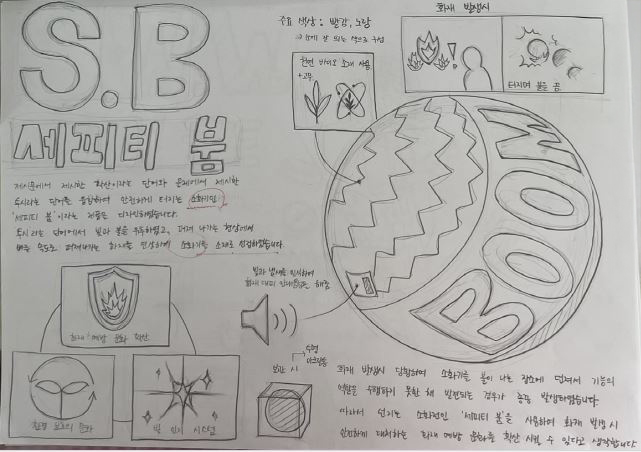 S.B
세피티 붐
제시문에서 제시한 확산이라는 단어와 문제에서 제시한
두시라는 단어를 융합하여 안전하게 터지는 소화기인
'세피티 붐'이라는 제품을 디자인하였습니다.
단어에서 빛과 불을 퍼져 나가는 현상에서
빠른 속도로 퍼져나가는 화재를 연상하여 소화기를 소재로 선정하였습니다.
주요 색상 : 빨강, 노랑
→ 눈에 잘 띄는 색으로 구성
천연 바이오 소재 사용
+고무
화재 발생시
터지며 불을 끔
BOOM
빛과 냄새를 인식하여
화재 대피 안내음성을 해줌
화재 예방 문화 확산
환경 보호의 문화
빛 인식 시스템
보관 시
→투명
아크릴통
화재 발생시 당황하여 소화기를 불이 나는 장소에 던져서 기능의
역할을 수행하지 못한 채 발견되는 경우가 종종 발생하였습니다
따라서 던지는 소화전인 '세피티 붐'을 사용하여 화재 발생 시
안전하게 대처하는 화재 예방 문화를 확산 시킬 수 있다고 생각합니다